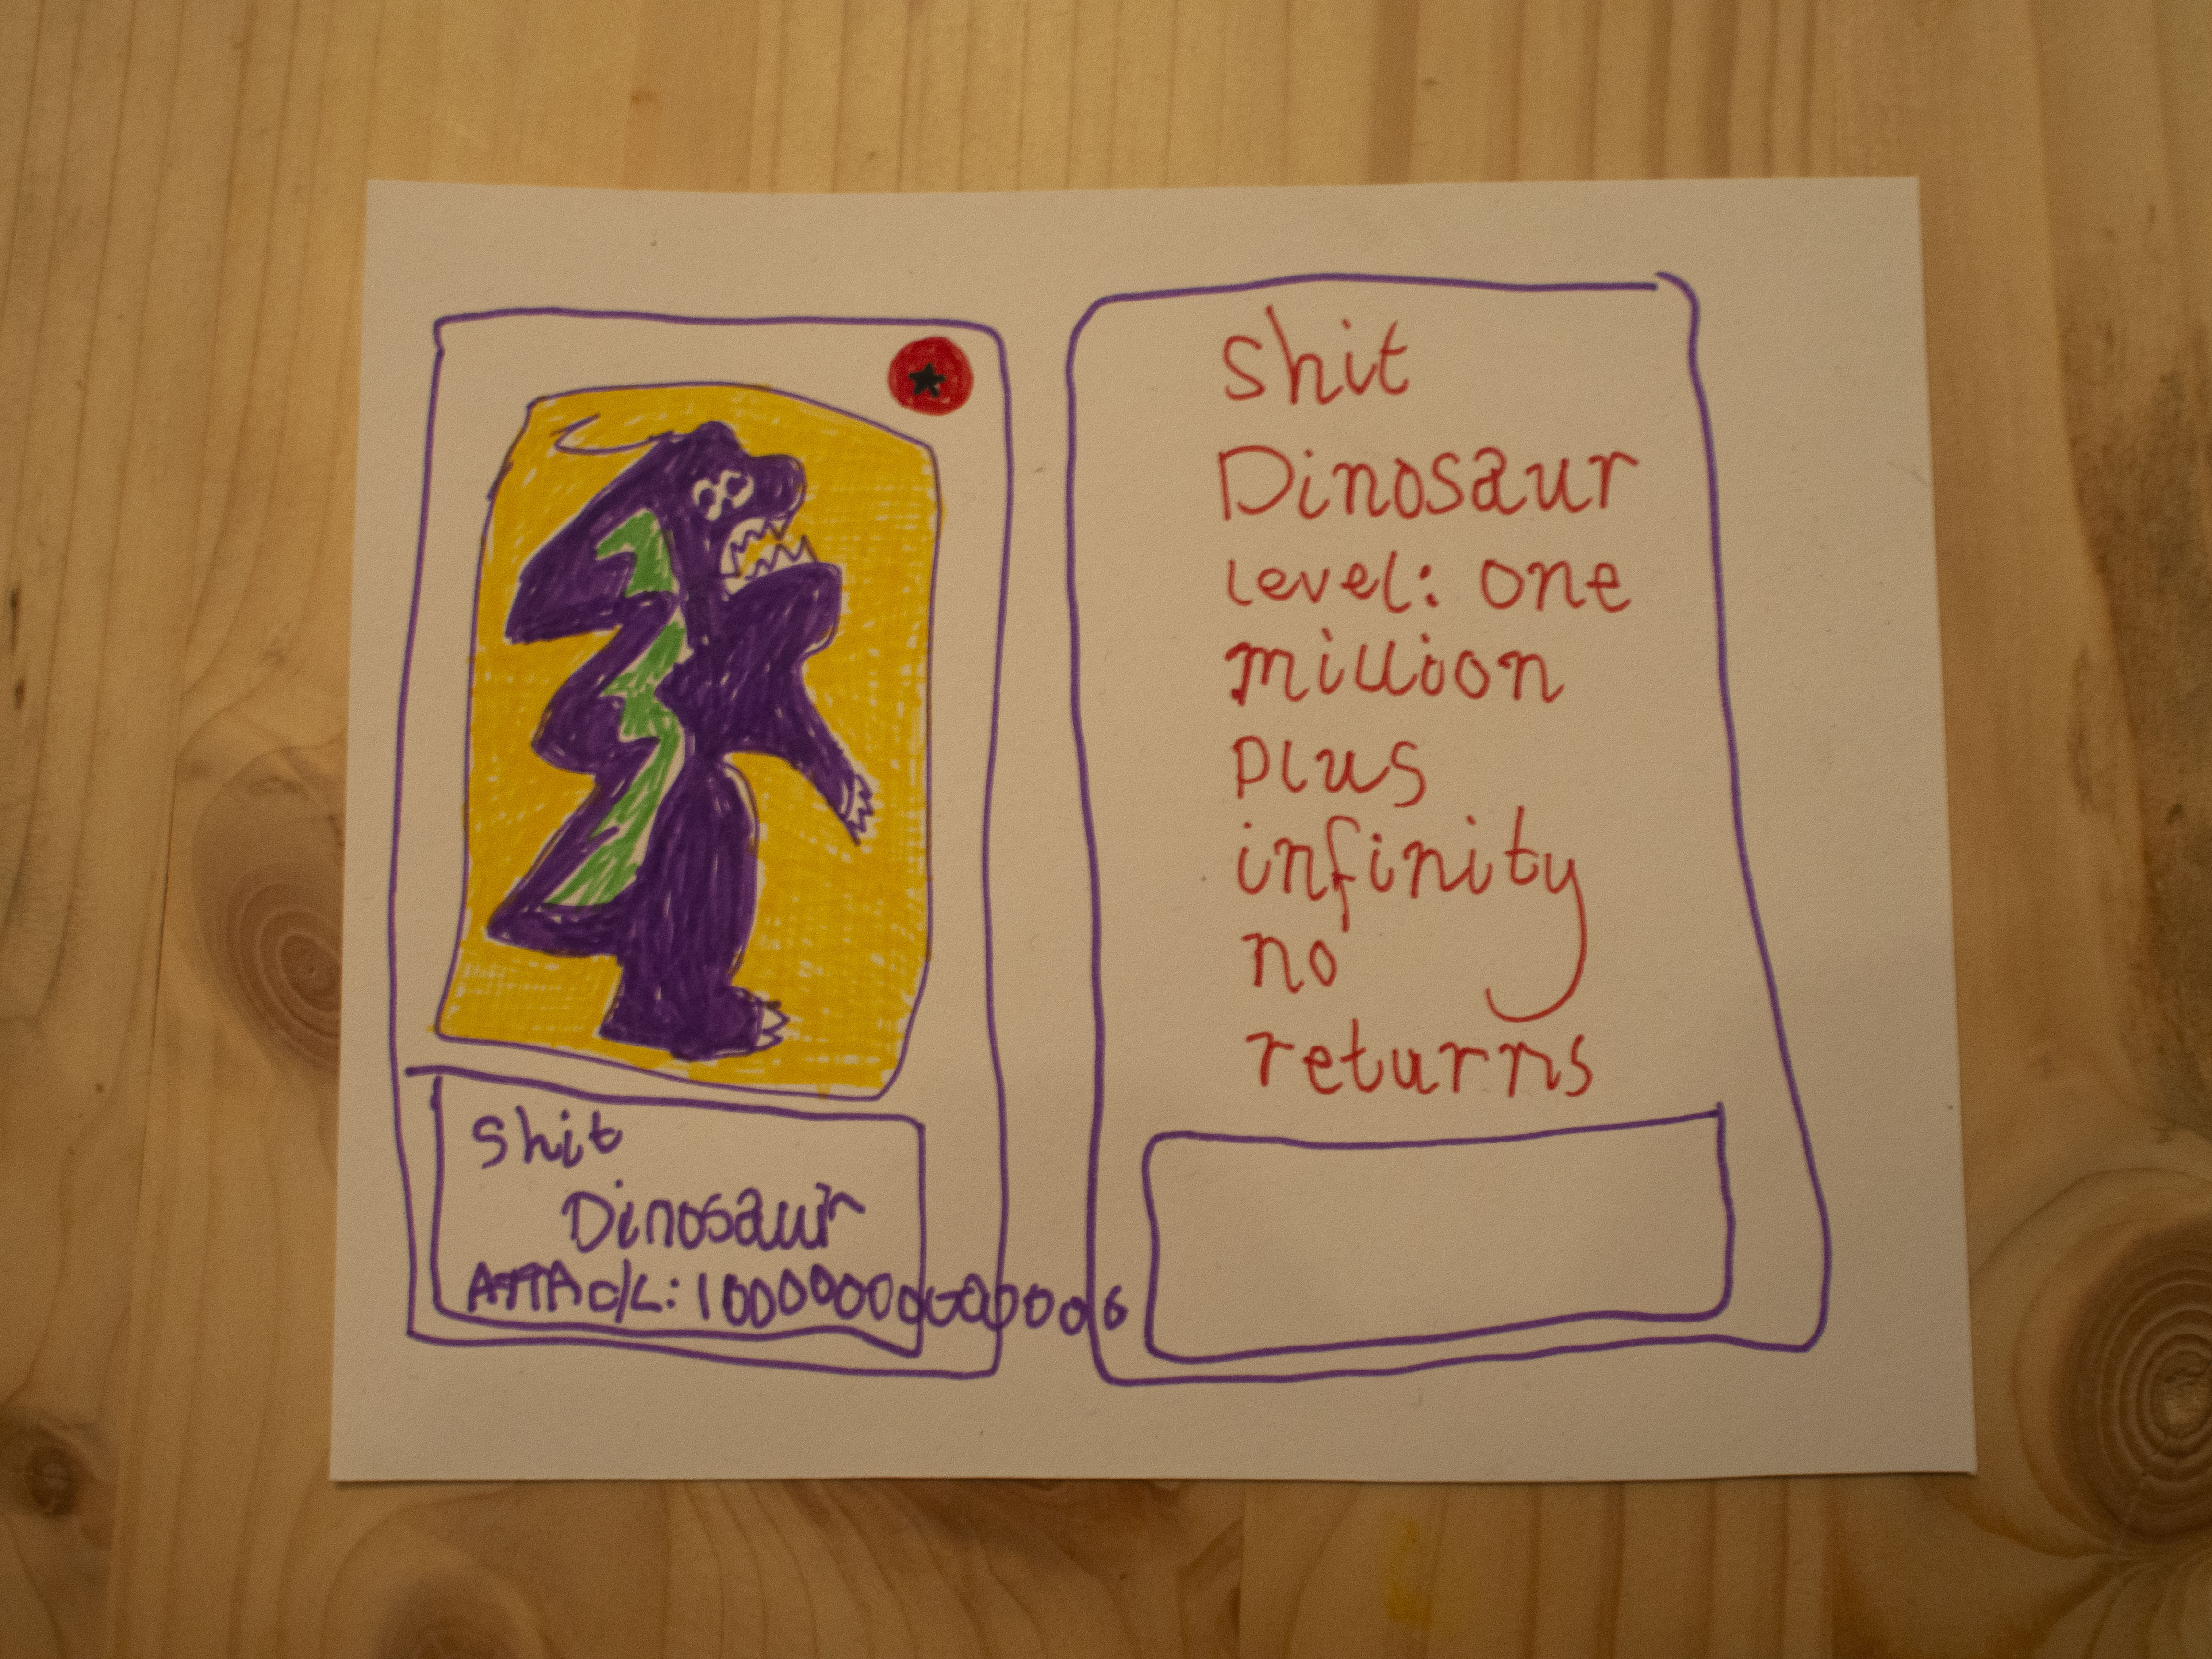 Shit
Dinosaur
ATTAck: 10000000000006
Shit
Dinosaur
Level: one
million
plus
infinity
no
returns